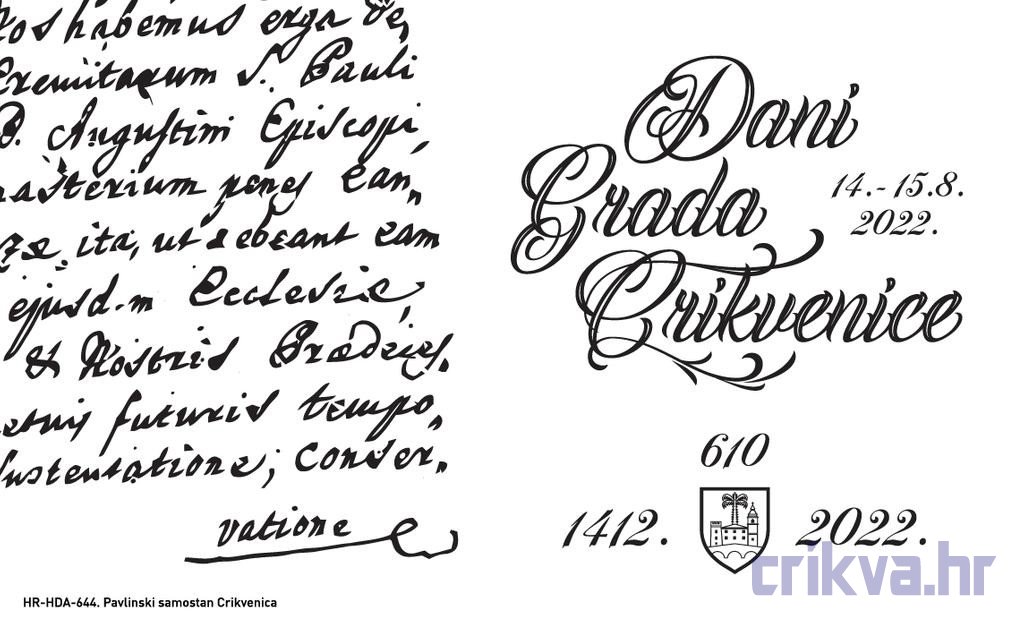 Nos habemus erga de„
Eremitarum S. Pauli
D. Augustini Episcopi„
nasterium penes Ean„
ita, ut debeant eam
ejusd.m Ecclesiæ,
& Nostris Prædeces„
futuris tempo„
sustentatione; conser„
vatione
HR-HDA-644. Pavlinski samostan Crikvenica
Dani
Grada
Crikvenice
14.-15.8.
2022.
610
1412. 2022.
crikva.hr